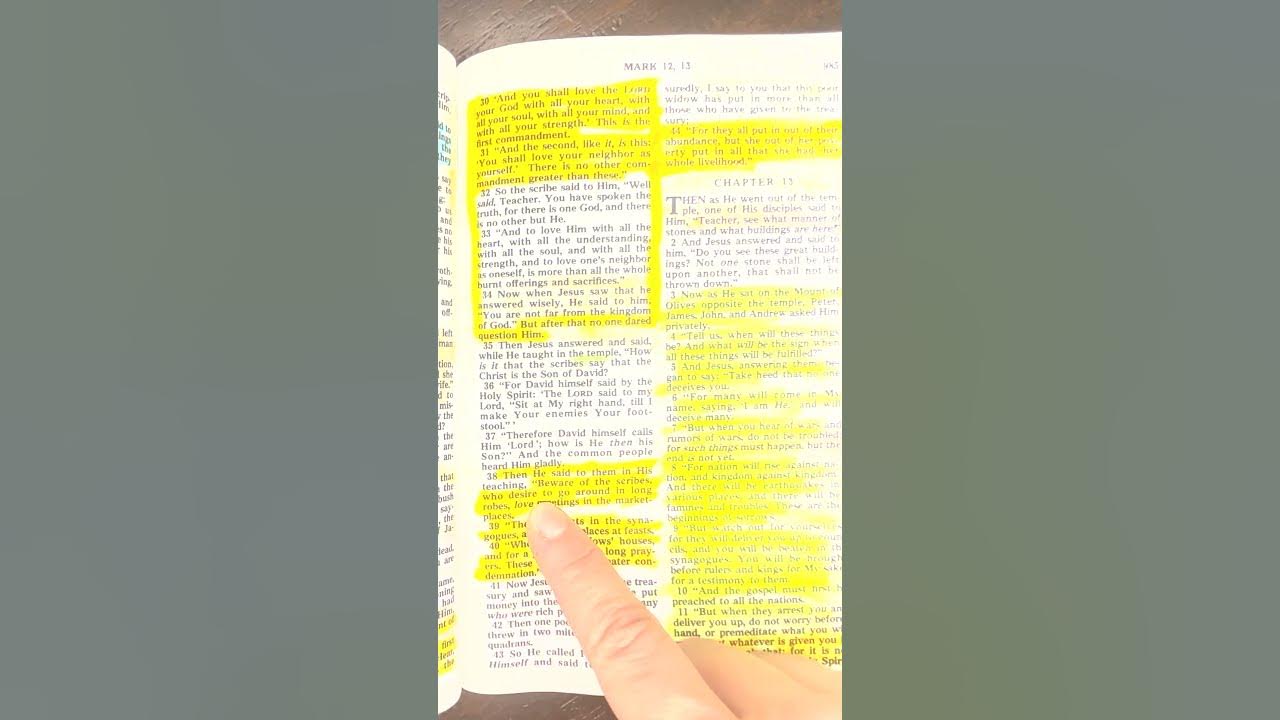 MARK 12, 13
985
30 'And you shall love the LORD
your God with all your heart, with
all your soul, with all your mind, and
with all your strength.' This is the
first commandment.
31 "And the second, like it, is this:
'You shall love your neighbor as
yourself.' There is no other com-
mandment greater than these."
32 So the scribe said to Him, "Well
said, Teacher. You have spoken the
truth, for there is one God, and there
is no other but He.
33 "And to love Him with all the
heart, with all the understanding,
with all the soul, and with all the
strength, and to love one's neighbor
as oneself, is more than all the whole
burnt offerings and sacrifices."
34 Now when Jesus saw that he
answered wisely, He said to him,
"You are not far from the kingdom
of God." But after that no one dared
question Him.
35 Then Jesus answered and said,
while He taught in the temple, "How
is it that the scribes say that the
Christ is the Son of David?
36 "For David himself said by the
Holy Spirit: 'The LORD said to my
Lord, "Sit at My right hand, till I
make Your enemies Your foot-
stool." '
37 "Therefore David himself calls
Him 'Lord'; how is He then his
Son?" And the common people
heard Him gladly.
38 Then He said to them in His
teaching, "Beware of the scribes,
who desire to go around in long
robes, love greetings in the market-
places,
39 "The ts in the syna-
gogues, places at feasts,
40 "Who ows' houses,
and for a long pray-
ers. These ater con-
demnation."
41 Now Jesus e trea-
sury and saw put
money into the any
who were rich p
42 Then one poo
threw in two mite
quadrans.
43 So He called
Himself and said to
suredly, I say to you that this poor
widow has put in more than all
those who have given to the trea-
sury;
44 "For they all put in out of their
abundance, but she out of her pov-
erty put in all that she had, her
whole livelihood."
CHAPTER 13
THEN as He went out of the tem
ple, one of His disciples said to
Him, "Teacher, see what manner of
stones and what buildings are here!"
2 And Jesus answered and said to
him, "Do you see these great build-
ings? Not one stone shall be left
upon another, that shall not be
thrown down."
3 Now as He sat on the Mount of
Olives opposite the temple, Peter,
James, John, and Andrew asked Him
privately,
4 "Tell us, when will these things
be? And what will be the sign when
all these things will be fulfilled?"
5 And Jesus, answering them, be-
gan to say: "Take heed that no one
deceives you.
6 "For many will come in My
name, saying, 'I am He,' and will
deceive many.
7 "But when you hear of wars and
rumors of wars, do not be troubled;
for such things must happen, but the
end is not yet.
8 "For nation will rise against na-
tion, and kingdom against kingdom.
And there will be earthquakes in
various places, and there will be
famines and troubles. These are the
beginnings of sorrows.
9 "But watch out for yourselves,
for they will deliver you up to coun-
cils, and you will be beaten in the
synagogues. You will be brought
before rulers and kings for My sake,
for a testimony to them.
10 "And the gospel must first b
preached to all the nations.
11 "But when they arrest you an
deliver you up, do not worry before
hand, or premeditate what you wi
whatever is given you
that; for it is n
Spir